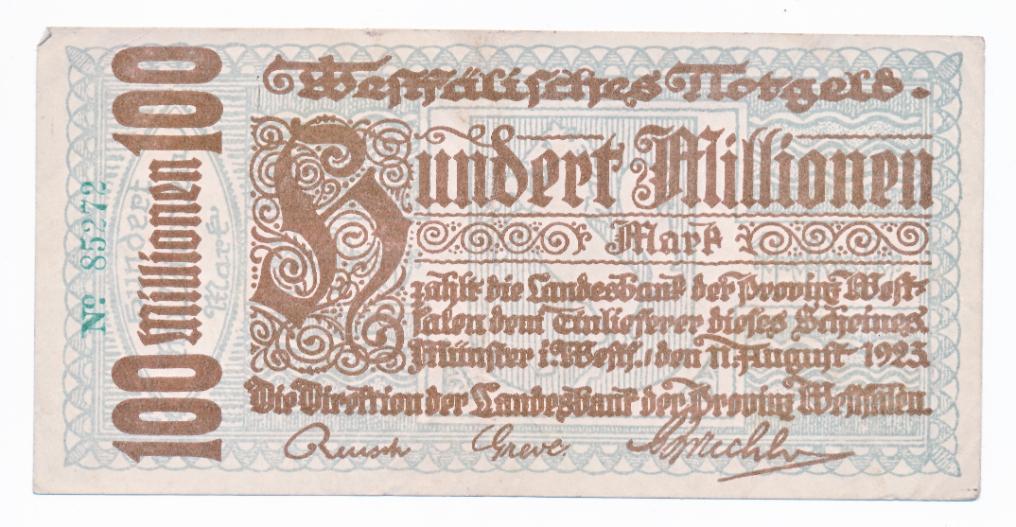 Westfälisches Notgeld.
Hundert Millionen
Mark
zahlt die Landesbank der Provinz West-
falen dem Einlieferer dieses Scheines.
Münster i. Westf., den 11. August 1923.
Die Direktion der Landesbank der Provinz Westfalen.
Reusch Greve
100 Millionen 100
Hundert
Mark
No 85272